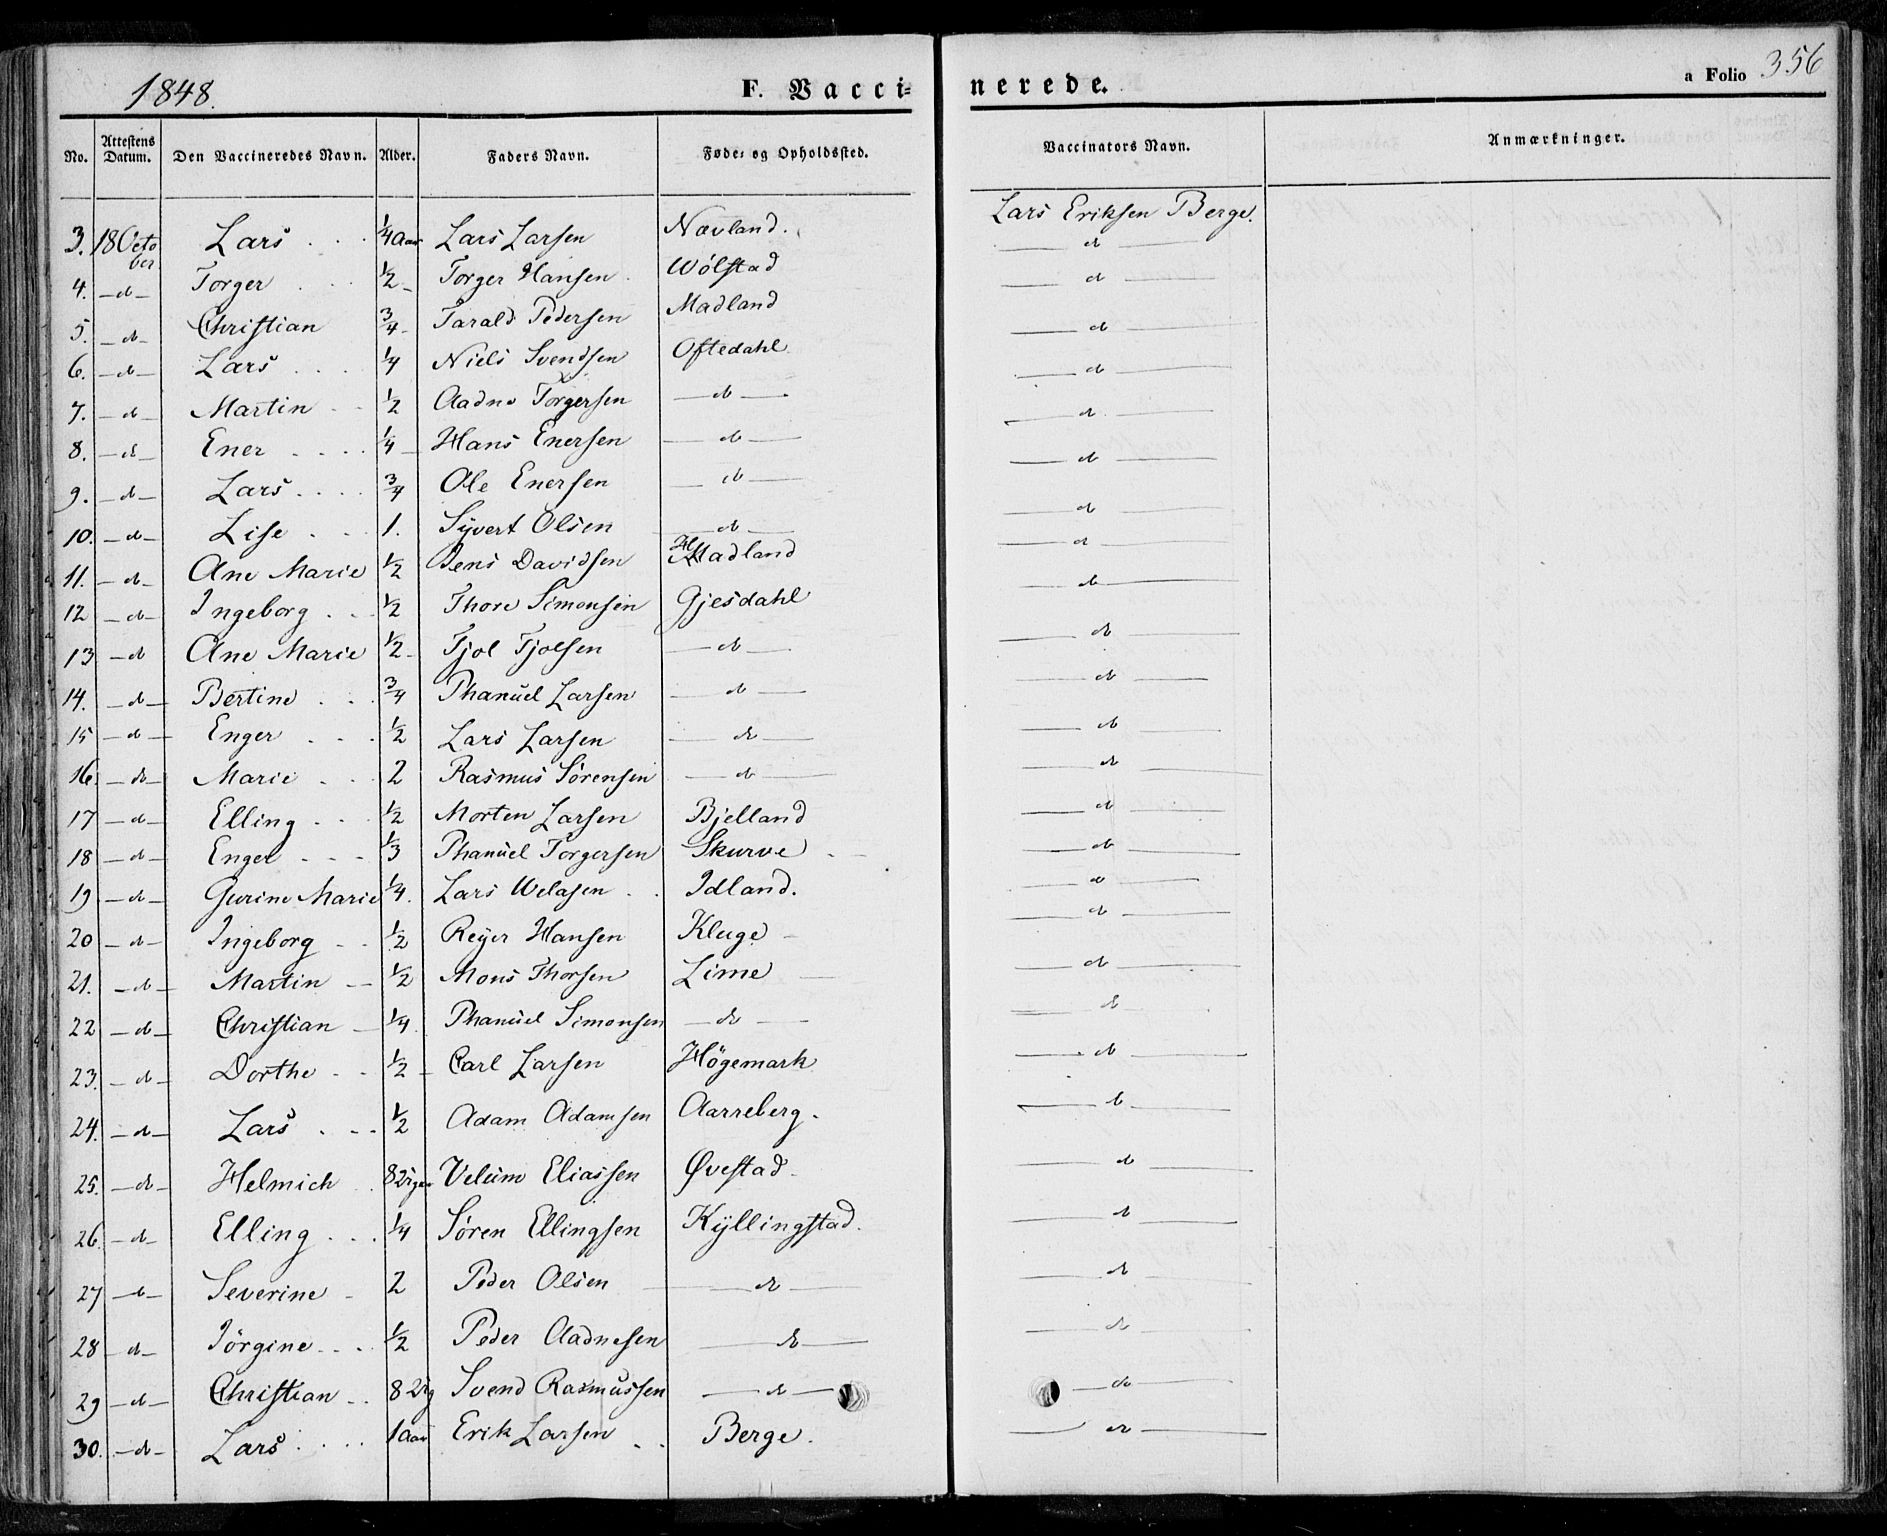 1848.
F. Vacci=
nerede.
a Folio 356
No. Attestens Datum. Den Vaccineredes Navn. Alder. Faders Navn. Føde- og Opholdssted. Vaccinators Navn. Anmærkninger.
Lars Eriksen Berge.
3. 18 October Lars 1/4 Aar Lars Larsen Nævland. — d —
4. — d — Torger 1/2 Torger Hansen Wølstad — d —
5. — d — Christian 3/4 Tarald Pedersen Madland — d —
6. — d — Lars 1/4 Niels Svendsen Oftedahl — d —
7. — d — Martin 1/2 Aadne Torgersen — d — — d —
8. — d — Ener 1/4 Hans Enersen — d — — d —
9. — d — Lars 3/4 Ole Enersen — d — — d —
10. — d — Lise 1. Syvert Olsen — d — — d —
11. — d — Ane Marie 1/2 Jens Davidsen Madland — d —
12 — d — Ingeborg 1/2 Thore Simonsen Gjesdahl — d —
13 — d Ane Marie 1/2 Tjol Tjolsen — d — — d —
14. — d — Bertine 3/4 Phanuel Larsen — d — — d —
15 — d — Enger 1/2 Lars Larsen — d — — d —
16. — d — Marie 2 Rasmus Sørensen — d — — d —
17 — d — Elling 1/2 Morten Larsen Bjelland — d —
18 — d — Enger 1/3 Phanuel Torgersen Skurve — d —
19 — d — Gurine Marie 1/4. Lars Welasen Idland. — d —
20 — d — Ingeborg 1/2 Rejer Hansen Kluge — d —
21. — d — Martin 1/2 Mons Thorsen Lime — d —
22 — d — Christian 1/4 Phanuel Simonsen — d — — d —
23. — d — Dorthe 1/2 Carl Larsen Högemark — d —
24. — d — Lars 1/2 Adam Adamsen Aarreberg. — d —
25. — d — Helmich 8 Uger Velum Eliassen Øvestad — d —
26. — d — Elling 1/4 Søren Ellingsen Kyllingstad. — d —
27 — d — Severine 2 Peder Olsen — d — — d —
28 — d — Jörgine 1/2 Peder Aadnesen — d — — d —
29 — d — Christian 8 Ug Svend Rasmussen — d — — d —
30. — d — Lars 1 Aar Erik Larsen Berge. — d —